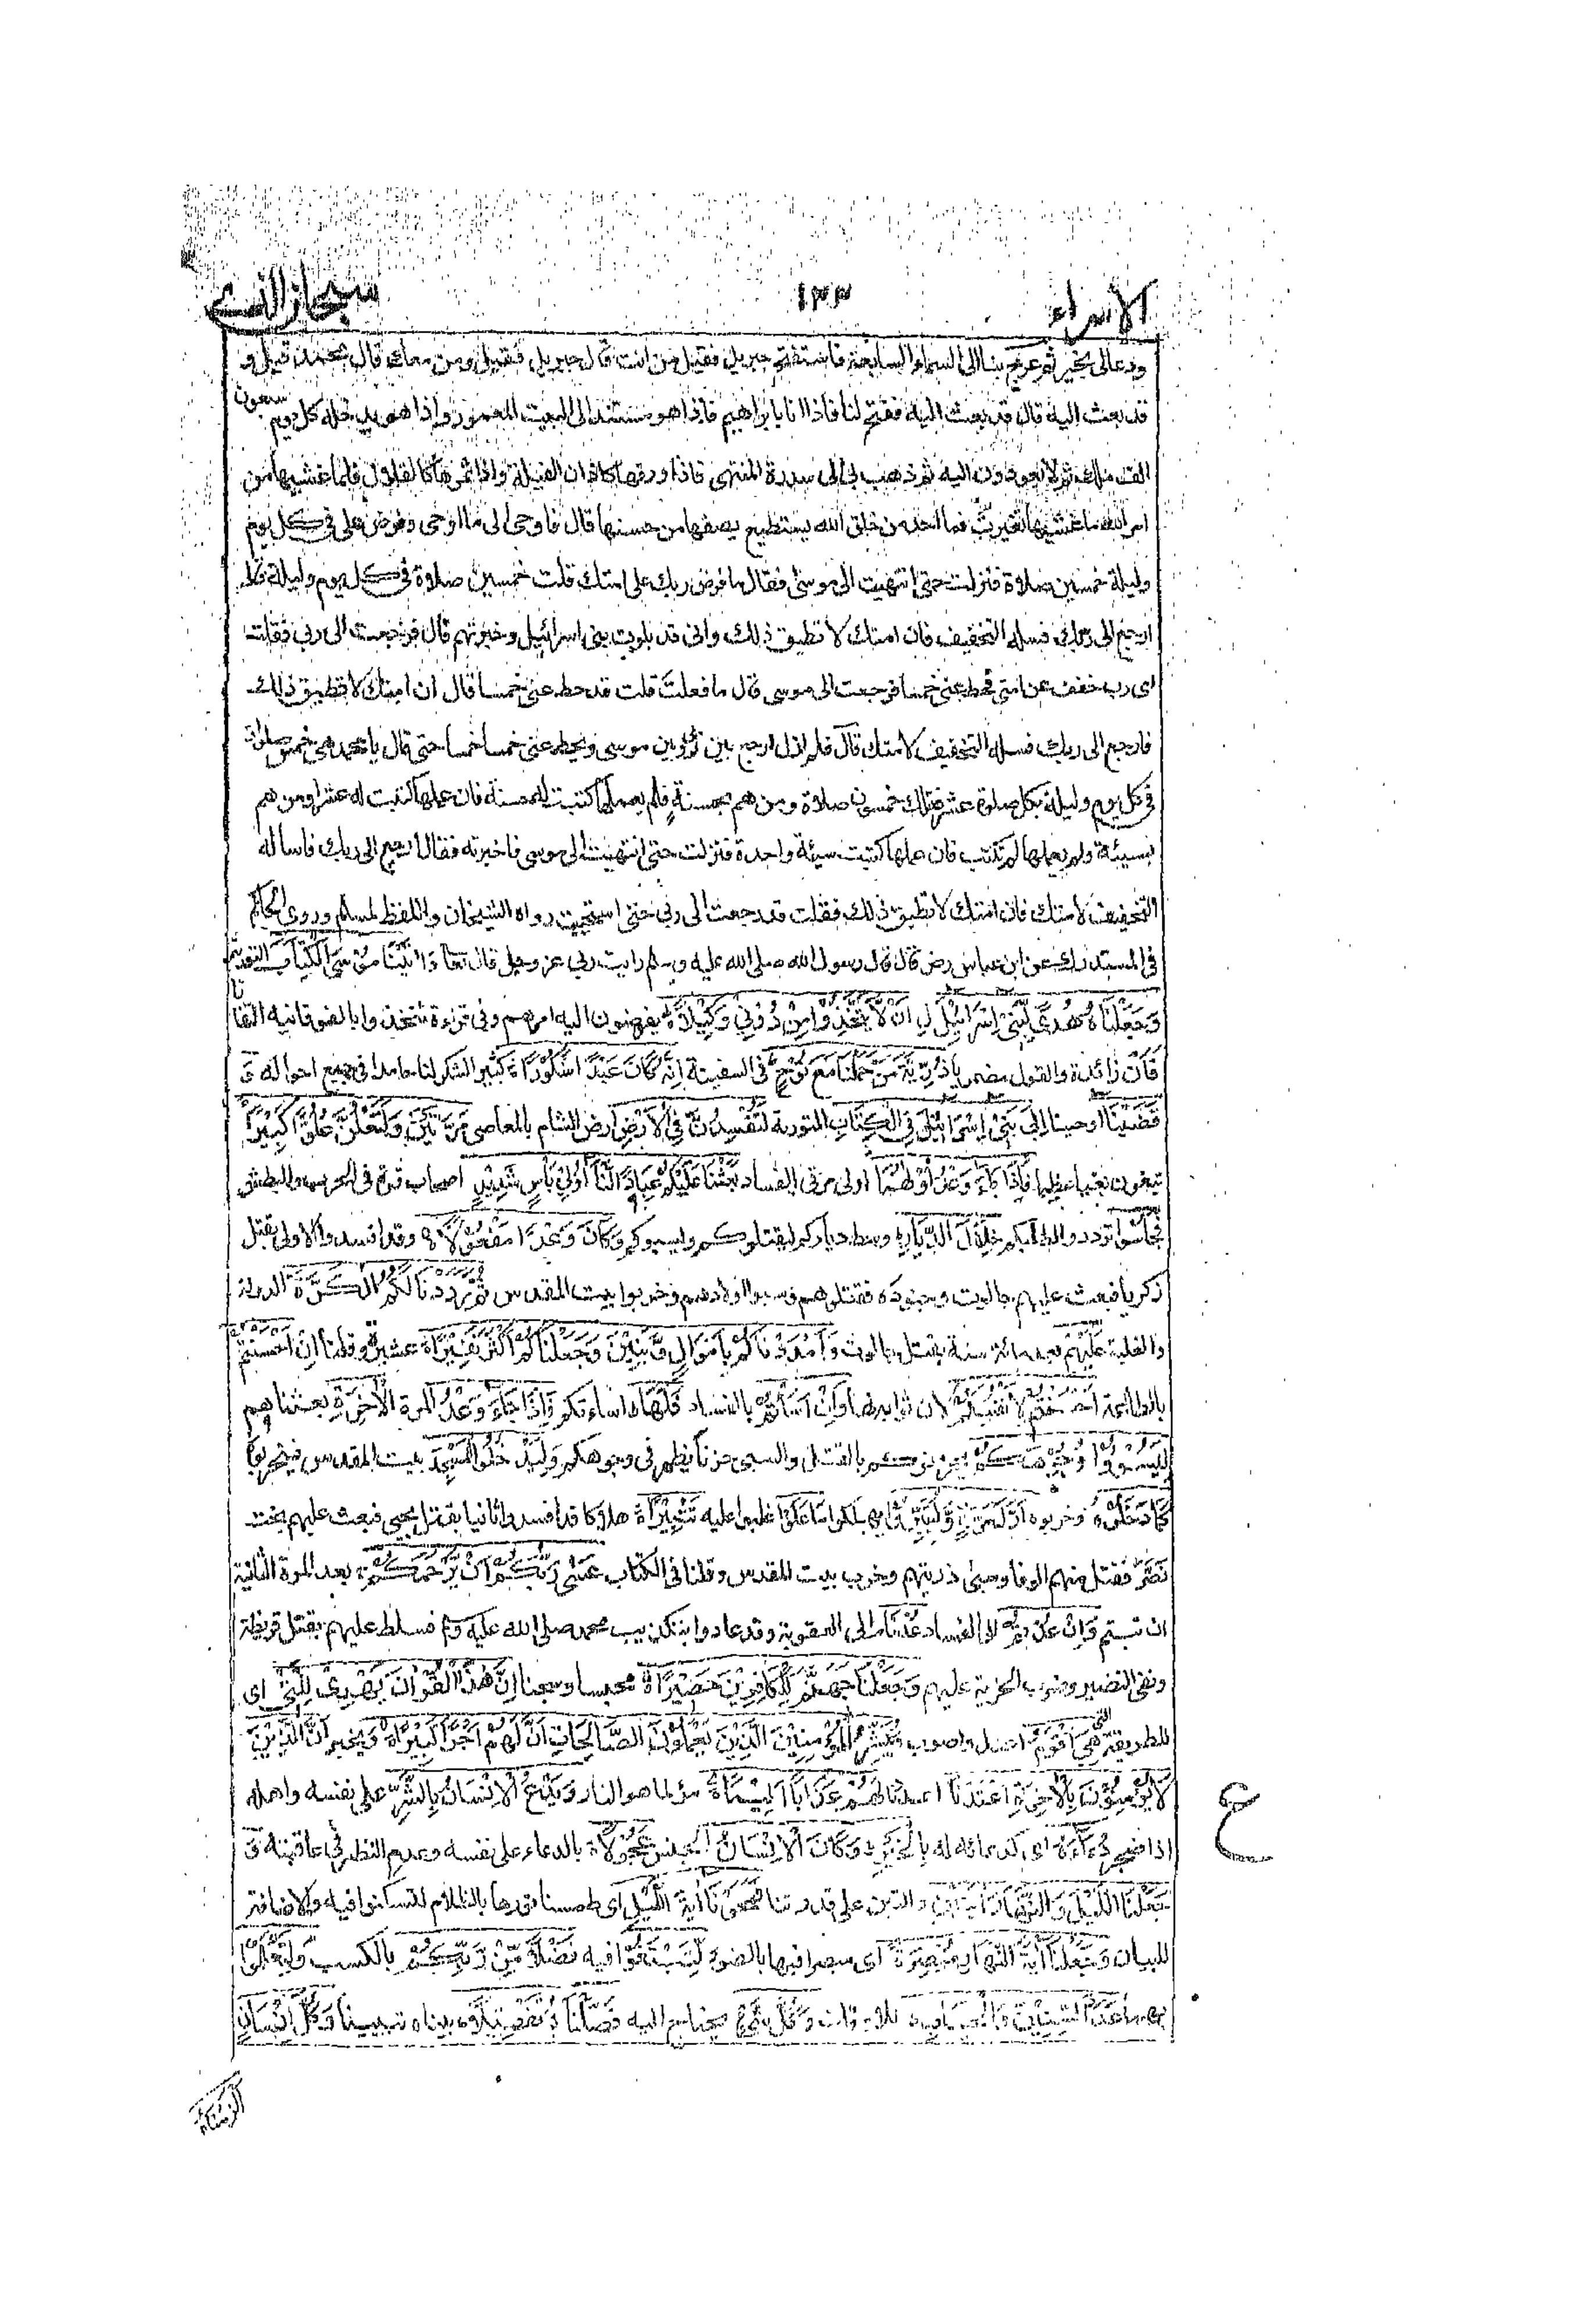 الاسراء ١٣٣ سبحان الذي
ودعالى بخير ثم عرج بنا الى السماء السابعة فاستفتح جبريل فقيل من انت قال جبريل فقيل ومن معك قال محمد قيل و
قد بعث اليه قال قد بعث اليه ففتح لنا فاذا انا بابراهيم فاذا هو مستند الى البيت المعمور واذا هو يدخله كل يوم سبعون
الف ملك ثم لا يعودون اليه ثم ذهب بي الى سدرة المنتهى فاذا ورقها كاذان الفيلة واذا ثمرها كالقلال فلما غشيها من
امر الله ما غشيها تغيرت فما احد من خلق الله يستطيع يصفها من حسنها قال فاوحى الى ما اوحى وفرض على في كل يوم
وليلة خمسين صلاة فنزلت حتى انتهيت الى موسى فقال ما فرض ربك على امتك قلت خمسين صلاة في كل يوم وليلة قال
ارجع الى ربك فسله التخفيف فان امتك لا تطيق ذلك وانى قد بلوت بنى اسرائيل وخبرتهم قال فرجعت الى ربى فقلت
اى رب خفف عن امتى فحط عنى خمسا فرجعت الى موسى قال ما فعلت قلت قد حط عنى خمسا قال ان امتك لا تطيق ذلك
فارجع الى ربك فسله التخفيف لامتك قال فلم ازل ارجع بين ربى وبين موسى ويحط عنى خمسا خمسا حتى قال يا محمد هى خمس صلوات
في كل يوم وليلة بكل صلوة عشر فتلك خمسون صلاة ومن هم بحسنة فلم يعملها كتبت له حسنة فان عملها كتبت له عشرا ومن هم
بسيئة ولم يعملها لم تكتب فان عملها كتبت سيئة واحدة فنزلت حتى انتهيت الى موسى فاخبرته فقال ارجع الى ربك فاساله
التخفيف لامتك فان امتك لا تطيق ذلك فقلت قد رجعت الى ربى حتى استحييت رواه الشيخان واللفظ لمسلم وروى الحاكم
في المستدرك عن ابن عباس رض قال قال رسول الله صلى الله عليه وسلم رايت ربى عز وجل قال تعا وَاٰتَيْنَا مُوْسَى الْكِتَابَ التورية
وَجَعَلْنَاهُ هُدًى لِّبَنِيْ اِسْرَائِيْلَ لِ اَنْ لَّا يَتَّخِذُوْا مِنْ دُوْنِيْ وَكِيْلًا يفوضون اليه امرهم وفي قراءة تتخذوا بالفوقانية التفاتا
فَاَنْ زائدة والقول مضمر يا ذُرِّيَّةَ مَنْ حَمَلْنَا مَعَ نُوْحٍ في السفينة اِنَّهُ كَانَ عَبْدًا شَكُوْرًا كثير الشكر لنا حامدا في جميع احواله وَ
قَضَيْنَا اوحينا اِلٰى بَنِيْ اِسْرَائِيْلَ فِي الْكِتَابِ التورية لَتُفْسِدُنَّ فِي الْاَرْضِ ارض الشام بالمعاصى مَرَّتَيْنِ وَلَتَعْلُنَّ عُلُوًّا كَبِيْرًا
تبغون بغيا عظيما فَاِذَا جَاءَ وَعْدُ اُوْلٰهُمَا اولى مرتى الفساد بَعَثْنَا عَلَيْكُمْ عِبَادًا لَّنَا اُولِيْ بَأْسٍ شَدِيْدٍ اصحاب قوة في الحرب والبطش
فَجَاسُوْا ترددوا لطلبكم خِلٰلَ الدِّيَارِ وسط دياركم ليقتلوكم ويسبوكم وَكَانَ وَعْدًا مَفْعُوْلًا وقد افسدوا الاولى بقتل
زكريا فبعث عليهم جالوت وجنوده فقتلوهم وسبوا اولادهم وخربوا بيت المقدس ثُمَّ رَدَدْنَا لَكُمُ الْكَرَّةَ الدولة
والغلبة عَلَيْهِمْ بعد مائة سنة بقتل جالوت وَاَمْدَدْنَاكُمْ بِاَمْوَالٍ وَّبَنِيْنَ وَجَعَلْنَاكُمْ اَكْثَرَ نَفِيْرًا عشيرة وقلنا اِنْ اَحْسَنْتُمْ
بالطاعة اَحْسَنْتُمْ لِاَنْفُسِكُمْ لان ثوابه لها وَاِنْ اَسَأْتُمْ بالفساد فَلَهَا اساءتكم فَاِذَا جَاءَ وَعْدُ المرة الْاٰخِرَةِ بعثناهم
لِيَسُوْٓءُوْا وُجُوْهَكُمْ يحزنوكم بالقتل والسبى حزنا يظهر في وجوهكم وَلِيَدْخُلُوا الْمَسْجِدَ بيت المقدس فيخربوه
كَمَا دَخَلُوْهُ وخربوه اَوَّلَ مَرَّةٍ وَّلِيُتَبِّرُوْا يهلكوا مَا عَلَوْا غلبوا عليه تَتْبِيْرًا هلاكا قد افسدوا ثانيا بقتل يحيى فبعث عليهم بخت
نصر فقتل منهم الوفا وسبى ذريتهم وخرب بيت المقدس وقلنا في الكتاب عَسٰى رَبُّكُمْ اَنْ يَّرْحَمَكُمْ بعد المرة الثانية
ان تبتم وَاِنْ عُدْتُّمْ الى الفساد عُدْنَا الى العقوبة وقد عادوا بتكذيب محمد صلى الله عليه وم فسلط عليهم بقتل قريظة
ونفى النضير وضرب الجزية عليهم وَجَعَلْنَا جَهَنَّمَ لِلْكَافِرِيْنَ حَصِيْرًا محبسا وسجنا اِنَّ هٰذَا الْقُرْاٰنَ يَهْدِيْ لِلَّتِيْ اى
للطريقة التى هِيَ اَقْوَمُ اعدل واصوب وَيُبَشِّرُ الْمُؤْمِنِيْنَ الَّذِيْنَ يَعْمَلُوْنَ الصَّالِحَاتِ اَنَّ لَهُمْ اَجْرًا كَبِيْرًا وَ يخبر اَنَّ الَّذِيْنَ
لَا يُؤْمِنُوْنَ بِالْاٰخِرَةِ اَعْتَدْنَا اعددنا لَهُمْ عَذَابًا اَلِيْمًا مؤلما هو النار وَيَدْعُ الْاِنْسَانُ بِالشَّرِّ على نفسه واهله
اذا ضجر دُعَاءَهُ اى كدعائه له بِالْخَيْرِ وَكَانَ الْاِنْسَانُ الجنس عَجُوْلًا بالدعاء على نفسه وعدم النظر في عاقبته وَ
جَعَلْنَا اللَّيْلَ وَالنَّهَارَ اٰيَتَيْنِ دالتين على قدرتنا فَمَحَوْنَا اٰيَةَ اللَّيْلِ اى طمسنا نورها بالظلام لتسكنوا فيه والاضافة
للبيان وَجَعَلْنَا اٰيَةَ النَّهَارِ مُبْصِرَةً اى مبصرا فيها بالضوء لِتَبْتَغُوْا فيه فَضْلًا مِّنْ رَّبِّكُمْ بالكسب وَلِتَعْلَمُوْا
بهما عَدَدَ السِّنِيْنَ وَالْحِسَابَ للاوقات وَكُلَّ شَيْءٍ يحتاج اليه فَصَّلْنَاهُ تَفْصِيْلًا بيناه تبيينا وَكُلَّ اِنْسَانٍ
ع
الزمناه